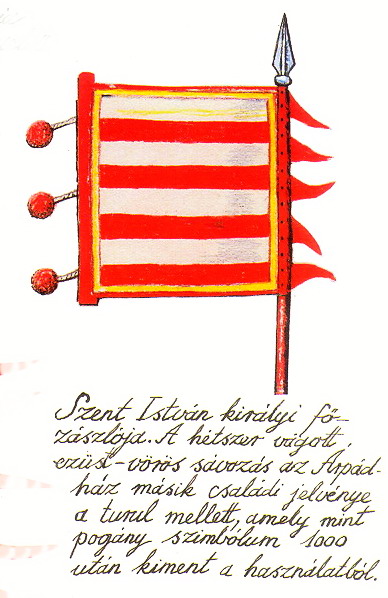 Szent István királyi fő-
zászlója. A hétszer vágott,
ezüst-vörös sávozás az Árpád-
ház másik családi jelvénye
a turul mellett, amely mint
pogány szimbólum 1000
után kiment a használatból.